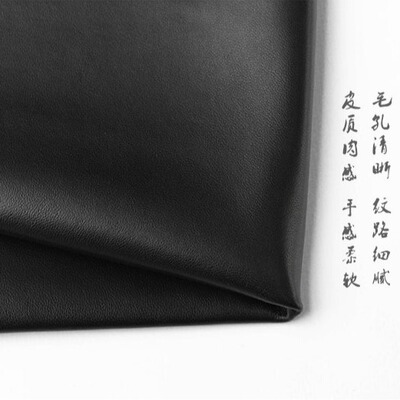 毛孔清晰 纹路细腻
皮质肉感 手感柔软